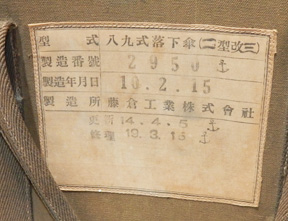 型式 八九式落下傘(二型改三)
製造番號 2950
製造年月日 10.2.15
製造所 藤倉工業株式會社
更新 14.4.5
修理 19.3.15